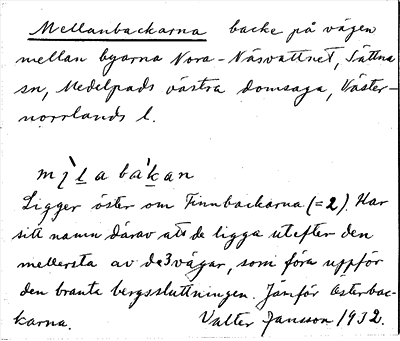 Mellanbackarna backe på vägen
mellan byarna Nora - Näsvattnet, Sättna
sn, Medelpads västra domsaga, Väster-
norrlands l.
mi̯labákan
Ligger öster om Finnbackarna (=2). Har
sitt namn därav att de ligga utefter den
mellersta av de 3 vägar, som föra uppför
den branta bergssluttningen. Jämför Österbac-
karna. Valter Jansson 1932.